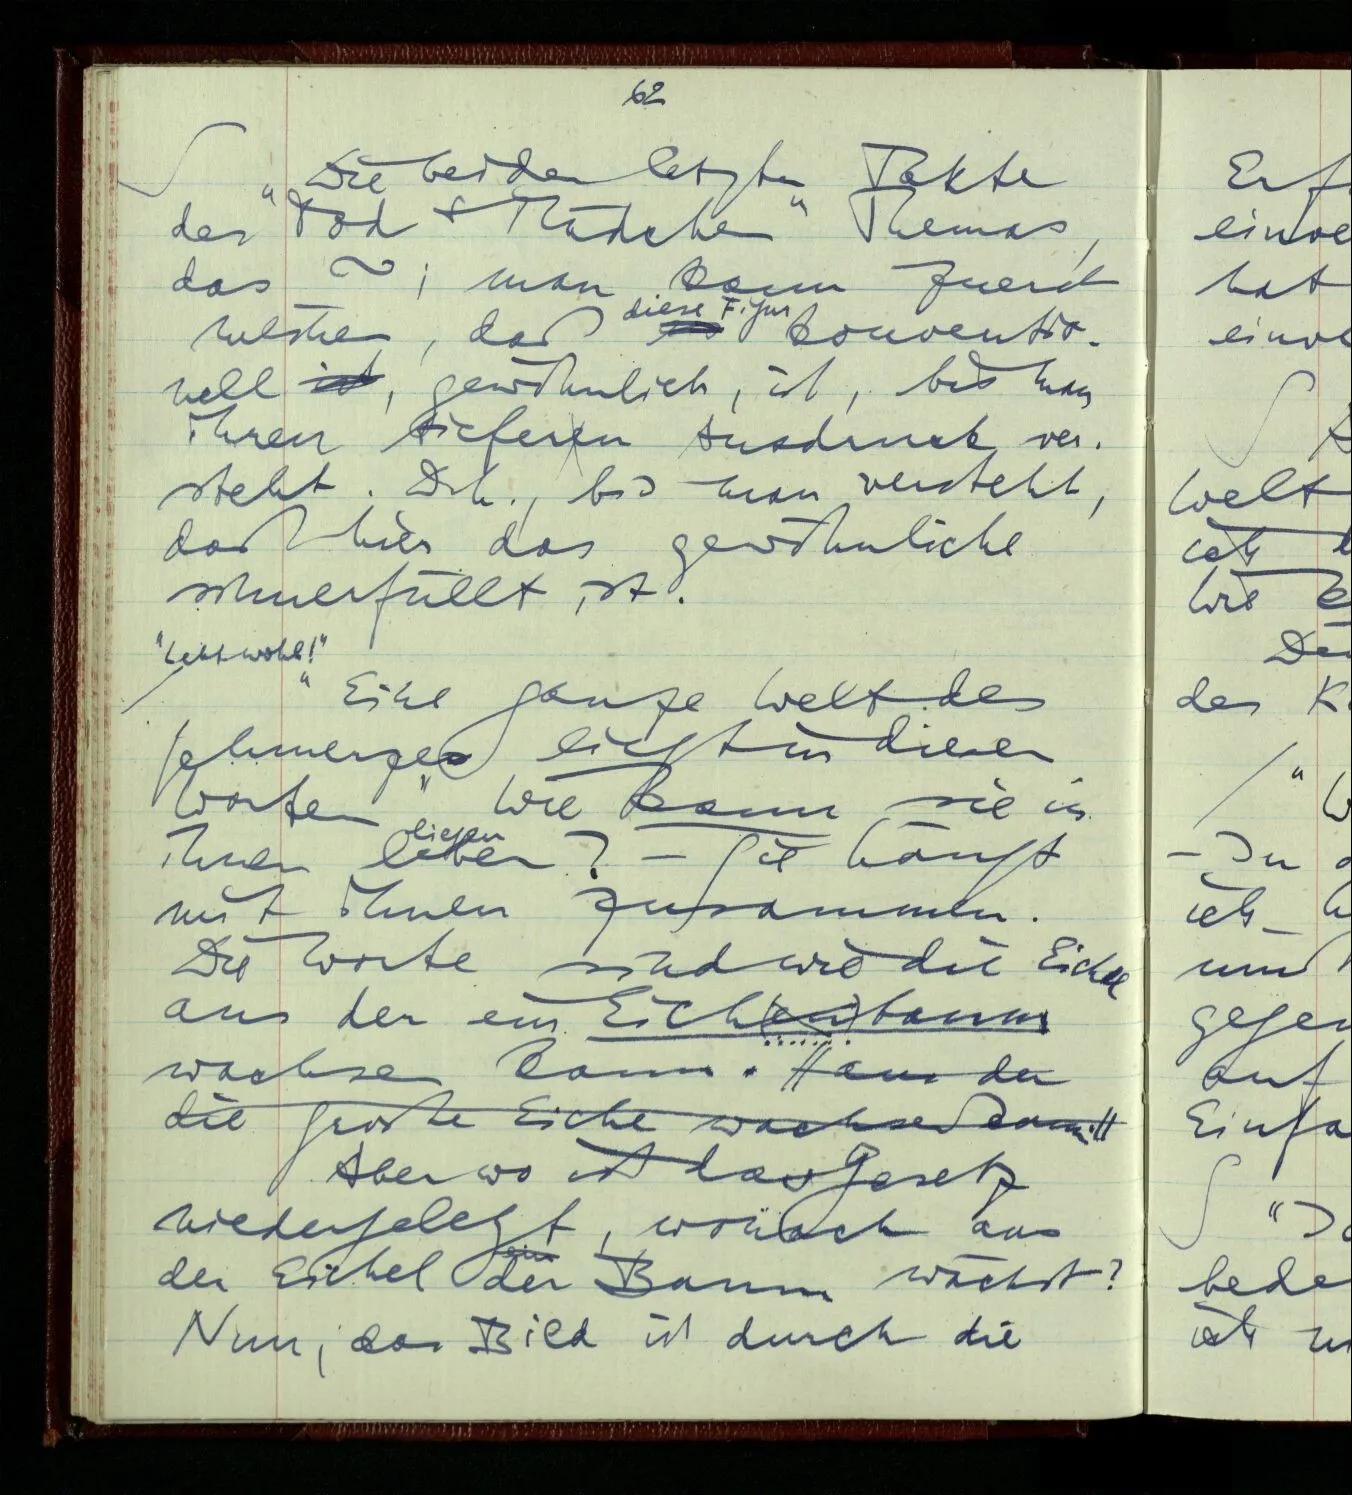 62
Die beiden letzten Takte
des "Tod & Mädchen" Themas,
das ~; man kann zuerst
meinen, daß diese Figur konventio-
nell ist, gewöhnlich, ist, bis man
ihren tieferen Ausdruck ver-
steht. D.h., bis man versteht,
daß hier das gewöhnliche
sinnerfüllt ist.
"Lebt wohl!"
"Eine ganze Welt des
Schmerzes liegt in diesen
Worten" Wie kann sie in
ihnen leben liegen? – Sie hängt
mit ihnen zusammen.
Die Worte sind wie die Eichel
aus der ein Eichenbaum
wachsen kann. // aus der
die große Eiche wachsen kann. //
Aber wo ist das Gesetz
niedergelegt, wonach aus
der Eichel der ein Baum wächst?
Nun, das Bild ist durch die
einve
hat
einve
Welt
ich
wie
der K
– In
ich
und
gegen
auf
Einfa
bede
ich